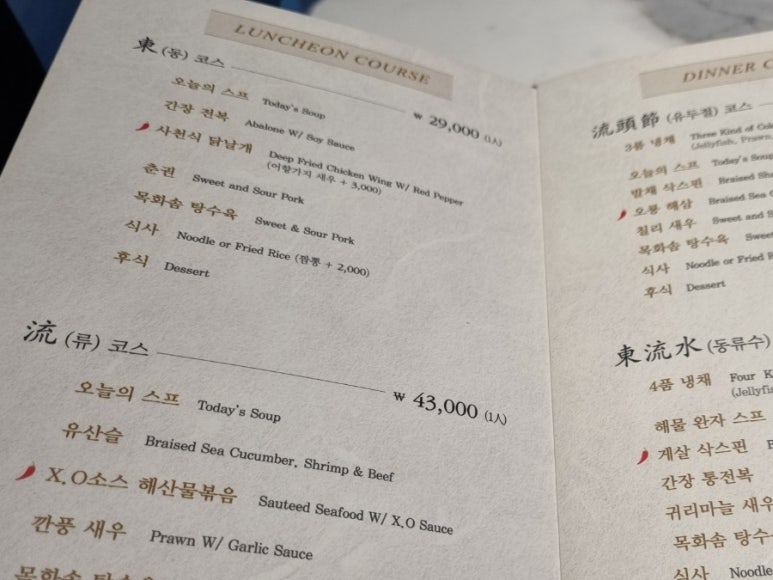 LUNCHEON COURSE
東 (동) 코스 ₩ 29,000 (1人)
오늘의 스프 Today's Soup
간장 전복 Abalone W/ Soy Sauce
사천식 닭날개 Deep Fried Chicken Wing W/ Red Pepper
(어향가지 새우 + 3,000)
춘권 Sweet and Sour Pork
목화솜 탕수육 Sweet & Sour Pork
식사 Noodle or Fried Rice (짬뽕 + 2,000)
후식 Dessert
流 (류) 코스 ₩ 43,000 (1人)
오늘의 스프 Today's Soup
유산슬 Braised Sea Cucumber, Shrimp & Beef
X.O소스 해산물볶음 Sauteed Seafood W/ X.O Sauce
깐풍 새우 Prawn W/ Garlic Sauce
목화솜 탕수육
DINNER
流頭節 (유두절) 코스
3품 냉채 Three Kind of
(Jellyfish, Prawn,
오늘의 스프 Today's Soup
발채 삭스핀 Braised
오룡 해삼 Braised Sea
칠리 새우 Sweet and
목화솜 탕수육
식사 Noodle or Fried
후식 Dessert
東流水 (동류수)
4품 냉채 Four
해물 완자 스프
게살 삭스핀
간장 통전복
귀리마늘 새우
목화솜 탕수
식사 Noodle